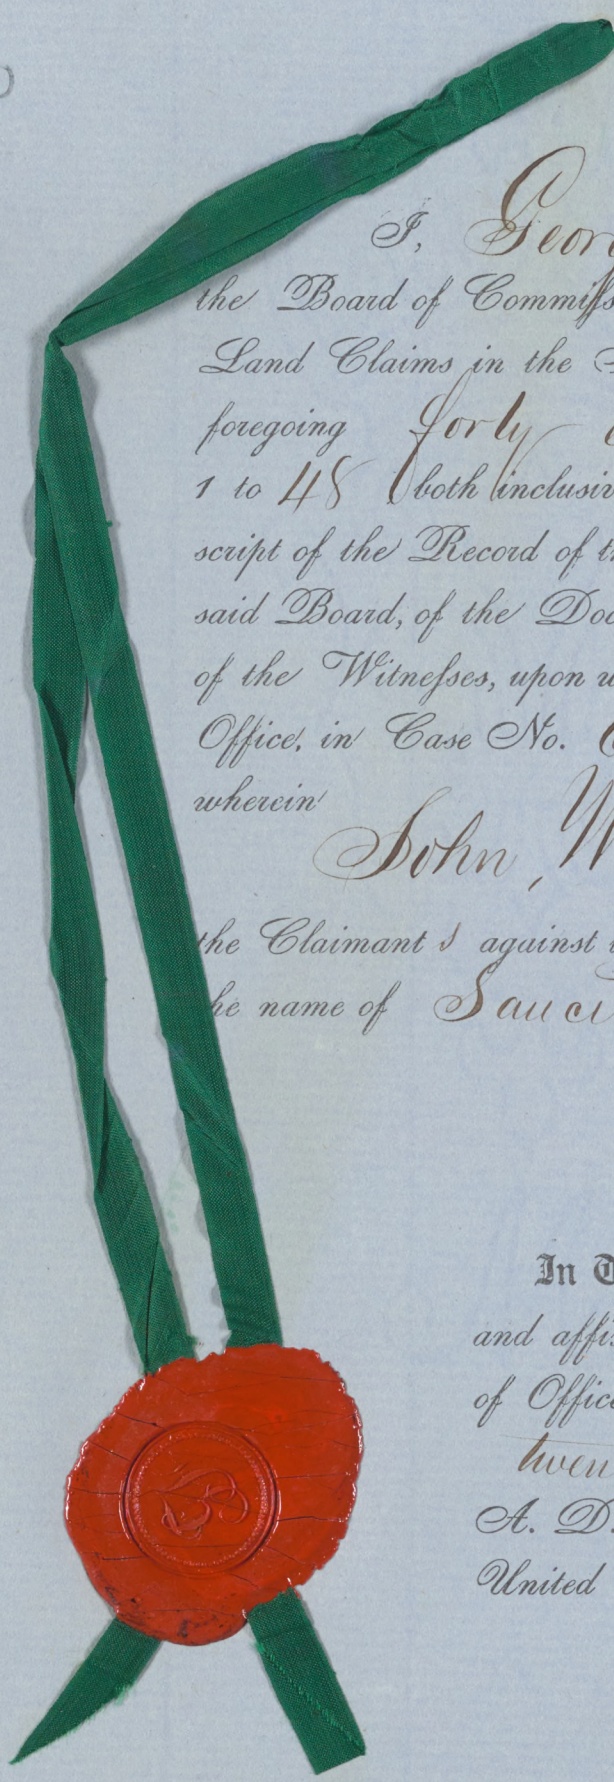 I, Geor
the Board of Commiss
Land Claims in the
foregoing forty
1 to 48 both inclusiv
script of the Record of th
said Board, of the Doc
of the Witnesses, upon w
Office, in Case No.
wherein
John W
the Claimant s against
he name of Sauci
In T
and affi
of Office
twen
A. D.
United